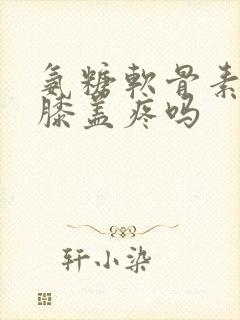 氨糖軟骨素
膝盖疼吗
轩小染